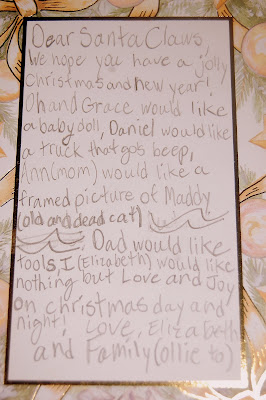 Dear Santa Claws,
We hope you have a jolly
Christmas and new year!
Oh and Grace would like
a baby doll, Daniel would like
a truck that gos beep,
Ann(mom) would like a
framed picture of Maddy
(old and dead cat)
Dad would like
tools, I (Elizabeth) would like
nothing but Love and Joy
on christmas day and
night! Love, Elizabeth
and Family (ollie to)